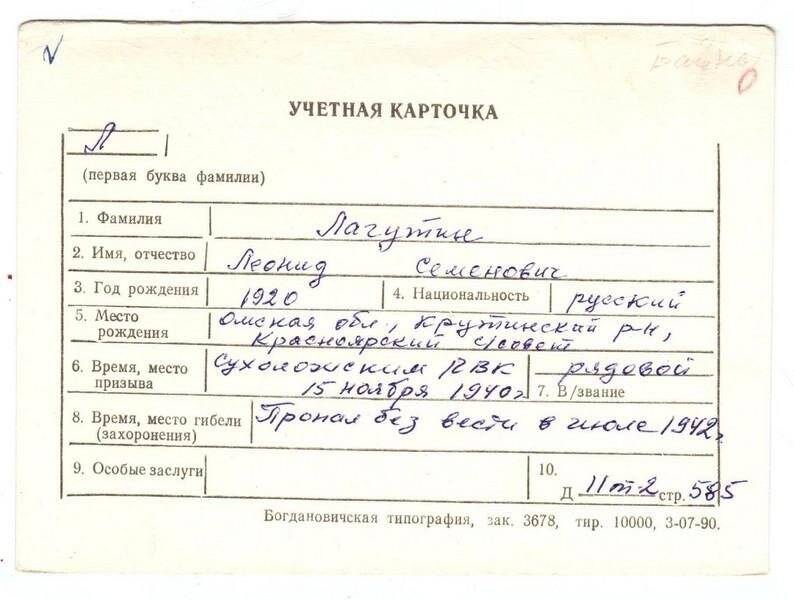 УЧЕТНАЯ КАРТОЧКА
Л
(первая буква фамилии)
1. Фамилия Лагутин
2. Имя, отчество Леонид Семенович
3. Год рождения 1920 4. Национальность русский
5. Место рождения Омская обл., Крутинский р-н,
Красноярский с/совет
6. Время, место призыва Сухоложским РВК
15 ноября 1940г
рядовой
7. В/звание
8. Время, место гибели (захоронения) Пропал без вести в июле 1942г.
9. Особые заслуги
10.
Д 11 т-2 стр. 585
Богдановичская типография, зак. 3678, тир. 10000, 3-07-90.